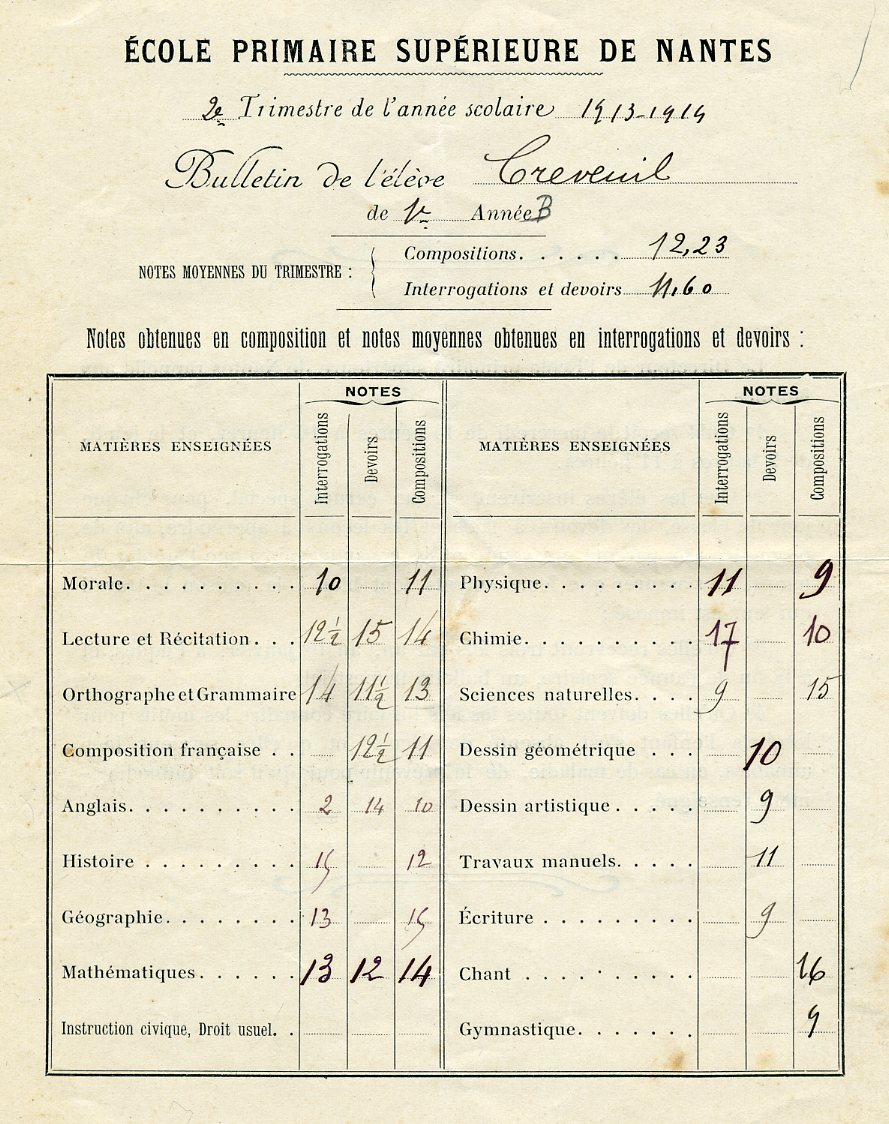 ÉCOLE PRIMAIRE SUPÉRIEURE DE NANTES
2e Trimestre de l'année scolaire 1913-1914
Bulletin de l'élève Creveuil
de 1re Année B
NOTES MOYENNES DU TRIMESTRE :
Compositions. . . . . . 12,23
Interrogations et devoirs 11,60
Notes obtenues en composition et notes moyennes obtenues en interrogations et devoirs :
MATIÈRES ENSEIGNÉES NOTES Interrogations Devoirs Compositions
Morale. . . . . . . . . . 10 11
Lecture et Récitation . . . 12 1/2 15 14
Orthographe et Grammaire 14 11 1/2 13
Composition française . . 12 1/2 11
Anglais. . . . . . . . . . 2 14 10
Histoire . . . . . . . . . 15 12
Géographie. . . . . . . . 13 15
Mathématiques . . . . . . 13 12 14
Instruction civique, Droit usuel. .
MATIÈRES ENSEIGNÉES NOTES Interrogations Devoirs Compositions
Physique. . . . . . . . . 11 9
Chimie. . . . . . . . . . 17 10
Sciences naturelles. . . . 9 15
Dessin géométrique . . . . 10
Dessin artistique . . . . 9
Travaux manuels. . . . . 11
Écriture . . . . . . . . . 9
Chant . . . . . . . . . . 16
Gymnastique. . . . . . . 9